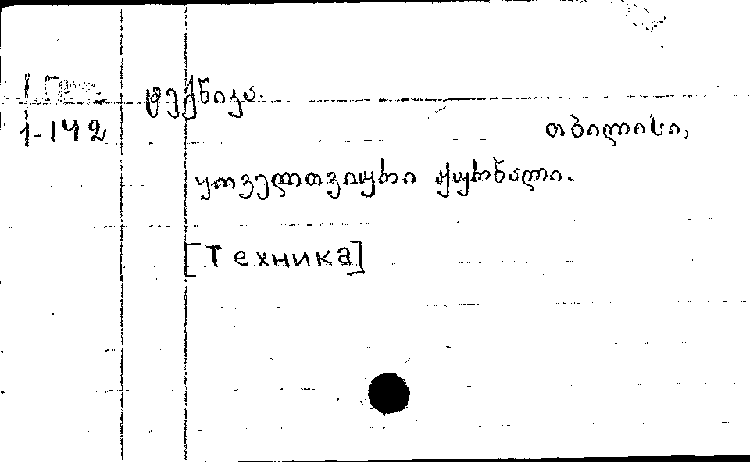 ტექნიკა.
1-142
თბილისი,
ყოველთვიური ჟურნალი.
[Техника]